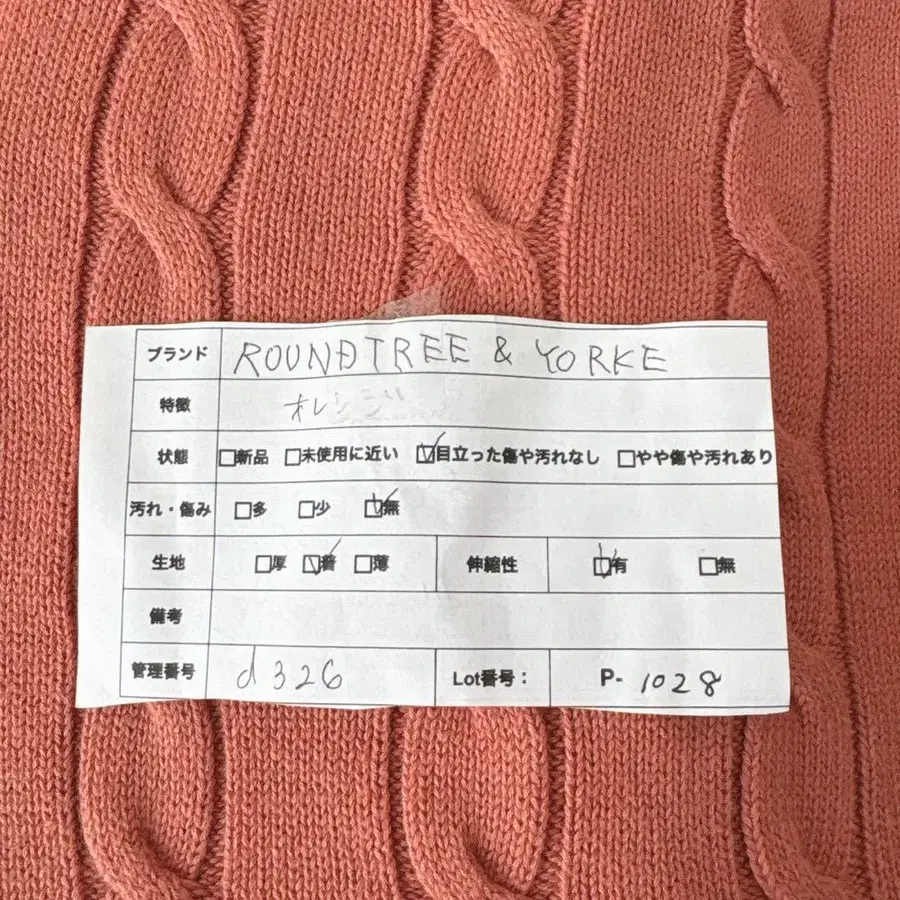 ブランド ROUNDTREE & YORKE
特徴 オレンジ
状態 □新品 □未使用に近い ☑目立った傷や汚れなし □やや傷や汚れあり
汚れ・傷み □多 □少 ☑無
生地 □厚 ☑普 □薄 伸縮性 ☑有 □無
備考
管理番号 d326 Lot番号： P- 1028